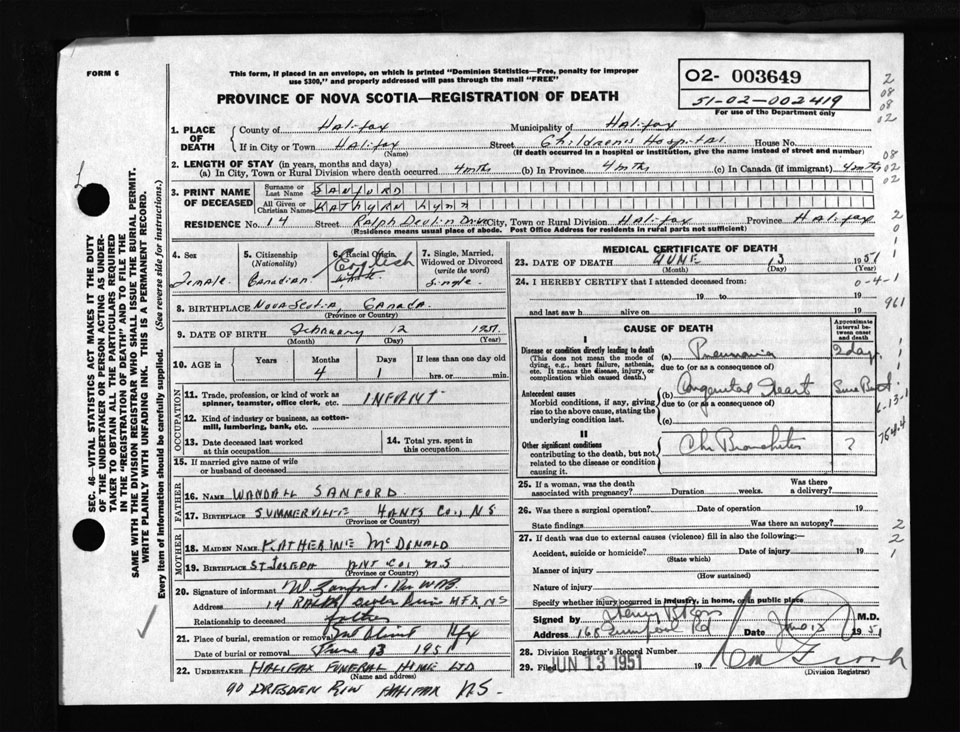 FORM 6
This form, if placed in an envelope, on which is printed "Dominion Statistics—Free, penalty for improper
use $300," and properly addressed will pass through the mail "FREE"
PROVINCE OF NOVA SCOTIA—REGISTRATION OF DEATH
02- 003649
51-02-002419
For use of the Department only
1. PLACE OF DEATH
County of Halifax Municipality of Halifax
If in City or Town Halifax Street Childrens Hospital House No.
(Name) (If death occurred in a hospital or institution, give the name instead of street and number)
2. LENGTH OF STAY (in years, months and days)
(a) In City, Town or Rural Division where death occurred 4 mths (b) In Province 4 mths (c) In Canada (if immigrant) 4 mths
3. PRINT NAME OF DECEASED
Surname or Last Name SANFORD
All Given or Christian Names KATHYRN LYNN
RESIDENCE No. 14 Street Ralph Devlin Drive City, Town or Rural Division Halifax Province Halifax
(Residence means usual place of abode. Post Office Address for residents in rural parts not sufficient)
4. Sex Female
5. Citizenship (Nationality) Canadian
6. Racial Origin English
7. Single, Married, Widowed or Divorced (write the word) Single
8. BIRTHPLACE Nova Scotia, Canada.
(Province or Country)
9. DATE OF BIRTH February 12 1951
(Month) (Day) (Year)
10. AGE Years Months 4 Days 1 If less than one day old hrs. or min.
OCCUPATION
11. Trade, profession, or kind of work as spinner, teamster, office clerk, etc. INFANT
12. Kind of industry or business, as cotton-mill, lumbering, bank, etc.
13. Date deceased last worked at this occupation
14. Total yrs. spent in this occupation
15. If married give name of wife or husband of deceased
FATHER
16. NAME WANDALL SANFORD
17. BIRTHPLACE SUMMERVILLE HANTS CO., NS
(Province or Country)
MOTHER
18. MAIDEN NAME KATHERINE McDONALD
19. BIRTHPLACE ST JOSEPH ANT CO, N.S
(Province or Country)
20. Signature of informant W. Sanford
Address 14 Ralph HFX, NS
Relationship to deceased father
21. Place of burial, cremation or removal Mt Olivet Hfx
Date of burial or removal June 13 1951
22. UNDERTAKER HALIFAX FUNERAL HOME LTD
(Name and address)
90 DRESDEN ROW HALIFAX N.S.
MEDICAL CERTIFICATE OF DEATH
23. DATE OF DEATH JUNE 13 1951
(Month) (Day)
24. I HEREBY CERTIFY that I attended deceased from:
19 to 19
and last saw h alive on 19
CAUSE OF DEATH
Approximate interval between onset and death
I
Disease or condition directly leading to death (a) Pneumonia 2 days
(This does not mean the mode of dying, e.g., heart failure, asthenia, etc. It means the disease, injury, or complication which caused death.)
due to (or as a consequence of)
Antecedent causes (b) Congenital Heart Since Birth
Morbid conditions, if any, giving rise to the above cause, stating the underlying condition last.
due to (or as a consequence of)
(c)
II
Other significant conditions contributing to the death, but not related to the disease or condition causing it. Chr Bronchitis ?
25. If a woman, was the death associated with pregnancy? Duration weeks. Was there a delivery?
26. Was there a surgical operation? Date of operation 19
State findings Was there an autopsy?
27. If death was due to external causes (violence) fill in also the following:—
Accident, suicide or homicide? Date of injury 19
(State which)
Manner of injury
(How sustained)
Nature of injury
Specify whether injury occurred in industry, in home, or in public place
Signed by M.D.
Address 165 Rd Date June 13 1951
28. Division Registrar's Record Number
29. Filed JUN 13 1951 19
(Division Registrar)
SEC. 46—VITAL STATISTICS ACT MAKES IT THE DUTY
OF THE UNDERTAKER OR PERSON ACTING AS UNDER-
TAKER TO OBTAIN ALL THE PARTICULARS REQUIRED
IN THE "REGISTRATION OF DEATH" AND TO FILE THE
SAME WITH THE DIVISION REGISTRAR WHO SHALL ISSUE THE BURIAL PERMIT.
WRITE PLAINLY WITH UNFADING INK. THIS IS A PERMANENT RECORD.
Every item of information should be carefully supplied. (See reverse side for instructions.)
2
08
08
02
08
02
02
2
0
1
0-4-1
961
6-13-1
7544
2
2
1